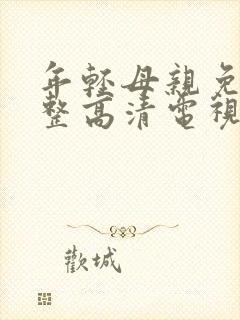 年輕母親免
整高清電視
歡城